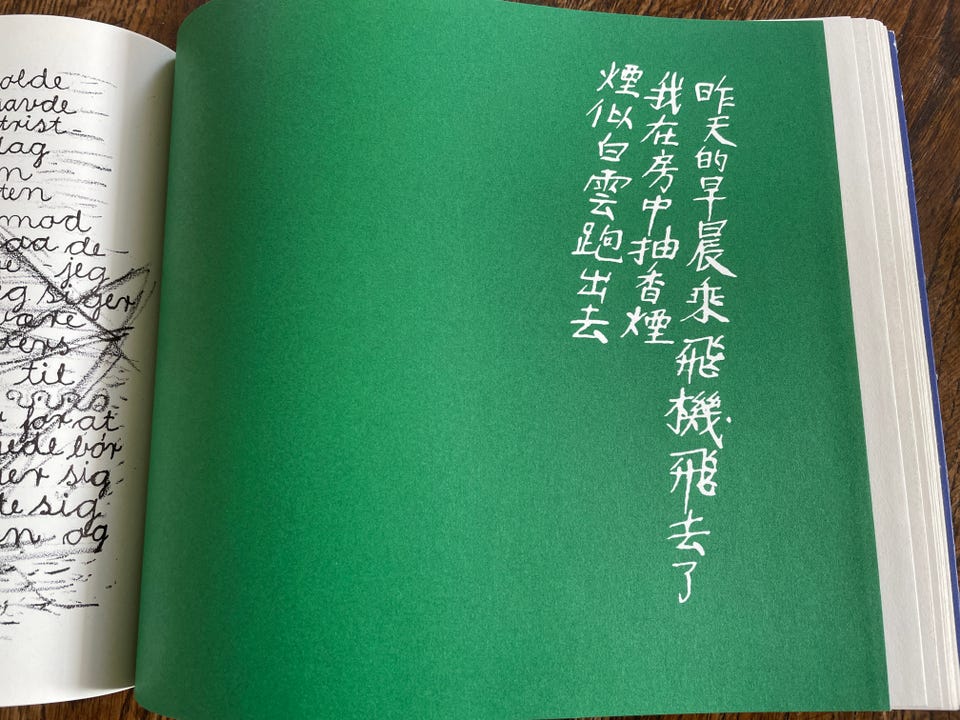 olde
avde
trist-
dag
n
ten
mod
aa de
jeg
g siger
være
vers
til
for at
ede bør
er sig
te sig
n og
昨天的早晨乘飛機飛去了
我在房中抽香煙
煙似白雲跑出去